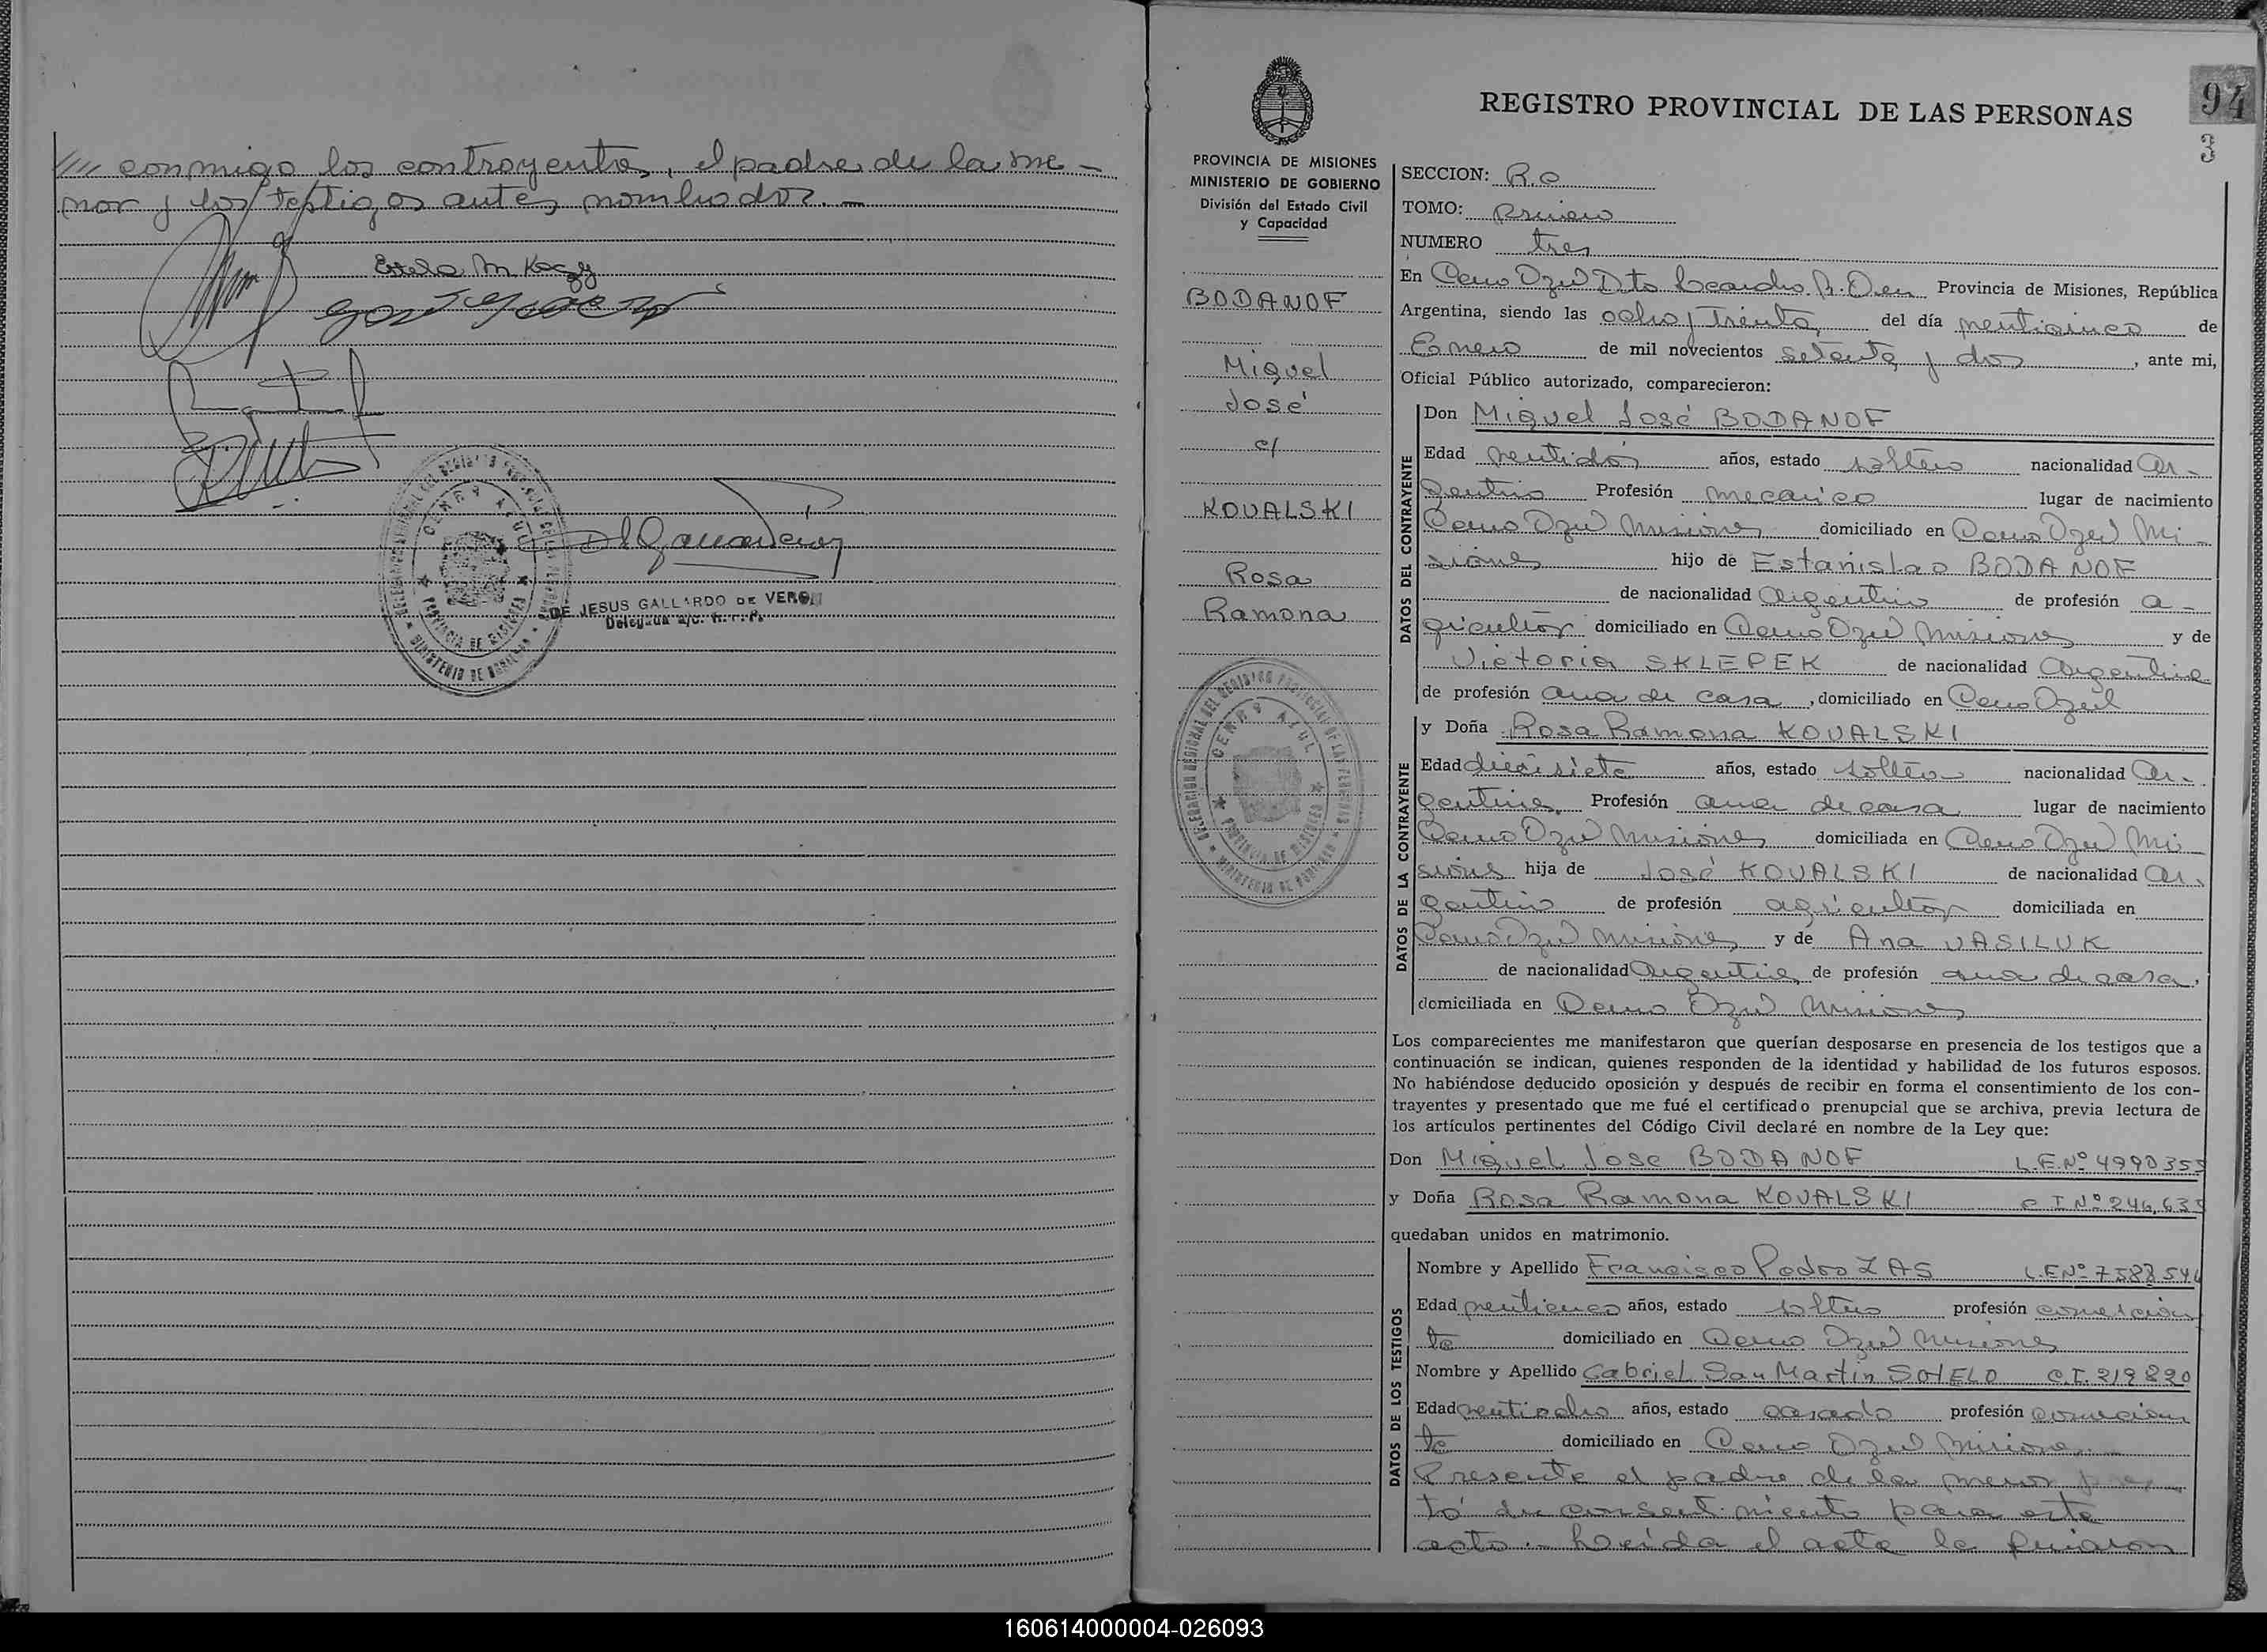 conmigo los contrayentes, el padre de la me-
nor y los testigos antes nombrados. —
Estela M Kozy
CERRO AZUL
PROVINCIA DE MISIONES
DE JESUS GALLARDO DE VERON
94
3
REGISTRO PROVINCIAL DE LAS PERSONAS
PROVINCIA DE MISIONES
MINISTERIO DE GOBIERNO
División del Estado Civil
y Capacidad
BODANOF
Miguel
José
c/
KOVALSKI
Rosa
Ramona
DELEGACION REGIONAL DEL REGISTRO PROVINCIAL DE LAS PERSONAS
CERRO AZUL
PROVINCIA DE MISIONES
MINISTERIO DE GOBIERNO
SECCION: R.O
TOMO: Primero
NUMERO tres
En Cerro Azul Dto Leandro N. Alem Provincia de Misiones, República
Argentina, siendo las ocho y treinta, del día veinticinco de
Enero de mil novecientos setenta y dos, ante mi,
Oficial Público autorizado, comparecieron:
DATOS DEL CONTRAYENTE
Don Miguel José BODANOF
Edad veintidós años, estado soltero nacionalidad Ar-
gentino Profesión mecánico lugar de nacimiento
Cerro Azul Misiones domiciliado en Cerro Azul Mi-
siones hijo de Estanislao BODANOF
de nacionalidad Argentino de profesión a-
gricultor domiciliado en Cerro Azul Misiones y de
Victoria SKLEPEK de nacionalidad Argentina
de profesión ama de casa, domiciliado en Cerro Azul
DATOS DE LA CONTRAYENTE
y Doña Rosa Ramona KOVALSKI
Edad diecisiete años, estado soltera nacionalidad Ar-
gentina Profesión ama de casa lugar de nacimiento
Cerro Azul Misiones domiciliada en Cerro Azul Mi
siones hija de José KOVALSKI de nacionalidad Ar-
gentino de profesión agricultor domiciliada en
Cerro Azul Misiones y de Ana VASILUK
de nacionalidad Argentina de profesión ama de casa,
domiciliada en Cerro Azul Misiones
Los comparecientes me manifestaron que querían desposarse en presencia de los testigos que a
continuación se indican, quienes responden de la identidad y habilidad de los futuros esposos.
No habiéndose deducido oposición y después de recibir en forma el consentimiento de los con-
trayentes y presentado que me fué el certificado prenupcial que se archiva, previa lectura de
los artículos pertinentes del Código Civil declaré en nombre de la Ley que:
Don Miguel Jose BODANOF L.E.Nº 4990355
y Doña Rosa Ramona KOVALSKI C I Nº 246.635
quedaban unidos en matrimonio.
DATOS DE LOS TESTIGOS
Nombre y Apellido Francisco Pedro ZAS L.E.Nº 7588546
Edad veinticinco años, estado soltero profesión comercian
te domiciliado en Cerro Azul Misiones
Nombre y Apellido Gabriel San Martin SOTELO C.I. 219220
Edad veintiocho años, estado casado profesión comercian
te domiciliado en Cerro Azul Misiones
Presente el padre de la menor pres
tó su consentimiento para este
acto.- Leída el acta la firmaron
160614000004-026093